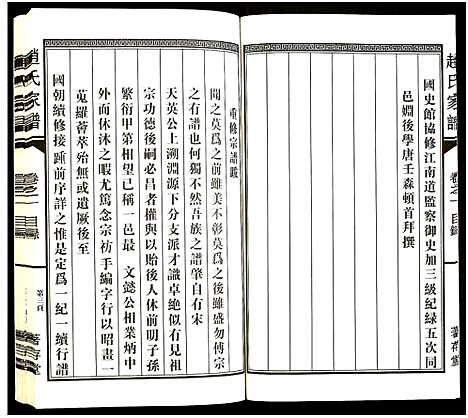 趙氏家譜
卷之一
目錄
著存堂
國史館協修江南道監察御史加三級紀錄五次同
邑姻後學唐壬森頓首拜撰
重修宗譜跋
聞之莫爲之前雖美不彰莫爲之後雖盛勿傳宗
之有譜也何獨不然吾族之譜肇自有宋
天英公上溯淵源下分支派才識卓絶似有見祖
宗功德後嗣必昌者權與以貽後人休前明子孫
繁衍甲第相望已稱一邑最 文懿公相業炳中
外而休沐之暇尤爲念宗祊手編字行以晜以續
蒐羅薈萃殆無或遺厥後至
國朝續修接踵前序詳之惟是定爲一紀一續行譜
趙氏家譜
卷之一
目錄
第三頁
著存堂